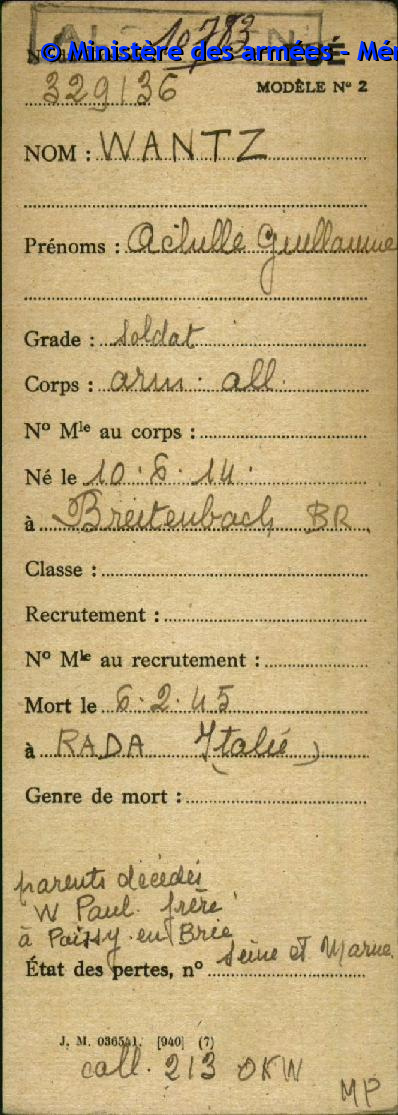 10783
© Ministère des armées - Mé
329136
MODÈLE Nº 2
NOM : WANTZ
Prénoms : Achille Guillaume
Grade : Soldat
Corps : arm. all.
Nº Mle au corps :
Né le 10.6.14.
à Breitenbach BR
Classe :
Recrutement :
Nº Mle au recrutement :
Mort le 6.2.45
à RADA (Italie)
Genre de mort :
parents décédés
W Paul frère
à Poissy en Brie
Seine et Marne.
État des pertes, nº
J. M. 036541. [940] (7)
call. 213 OKW
MP